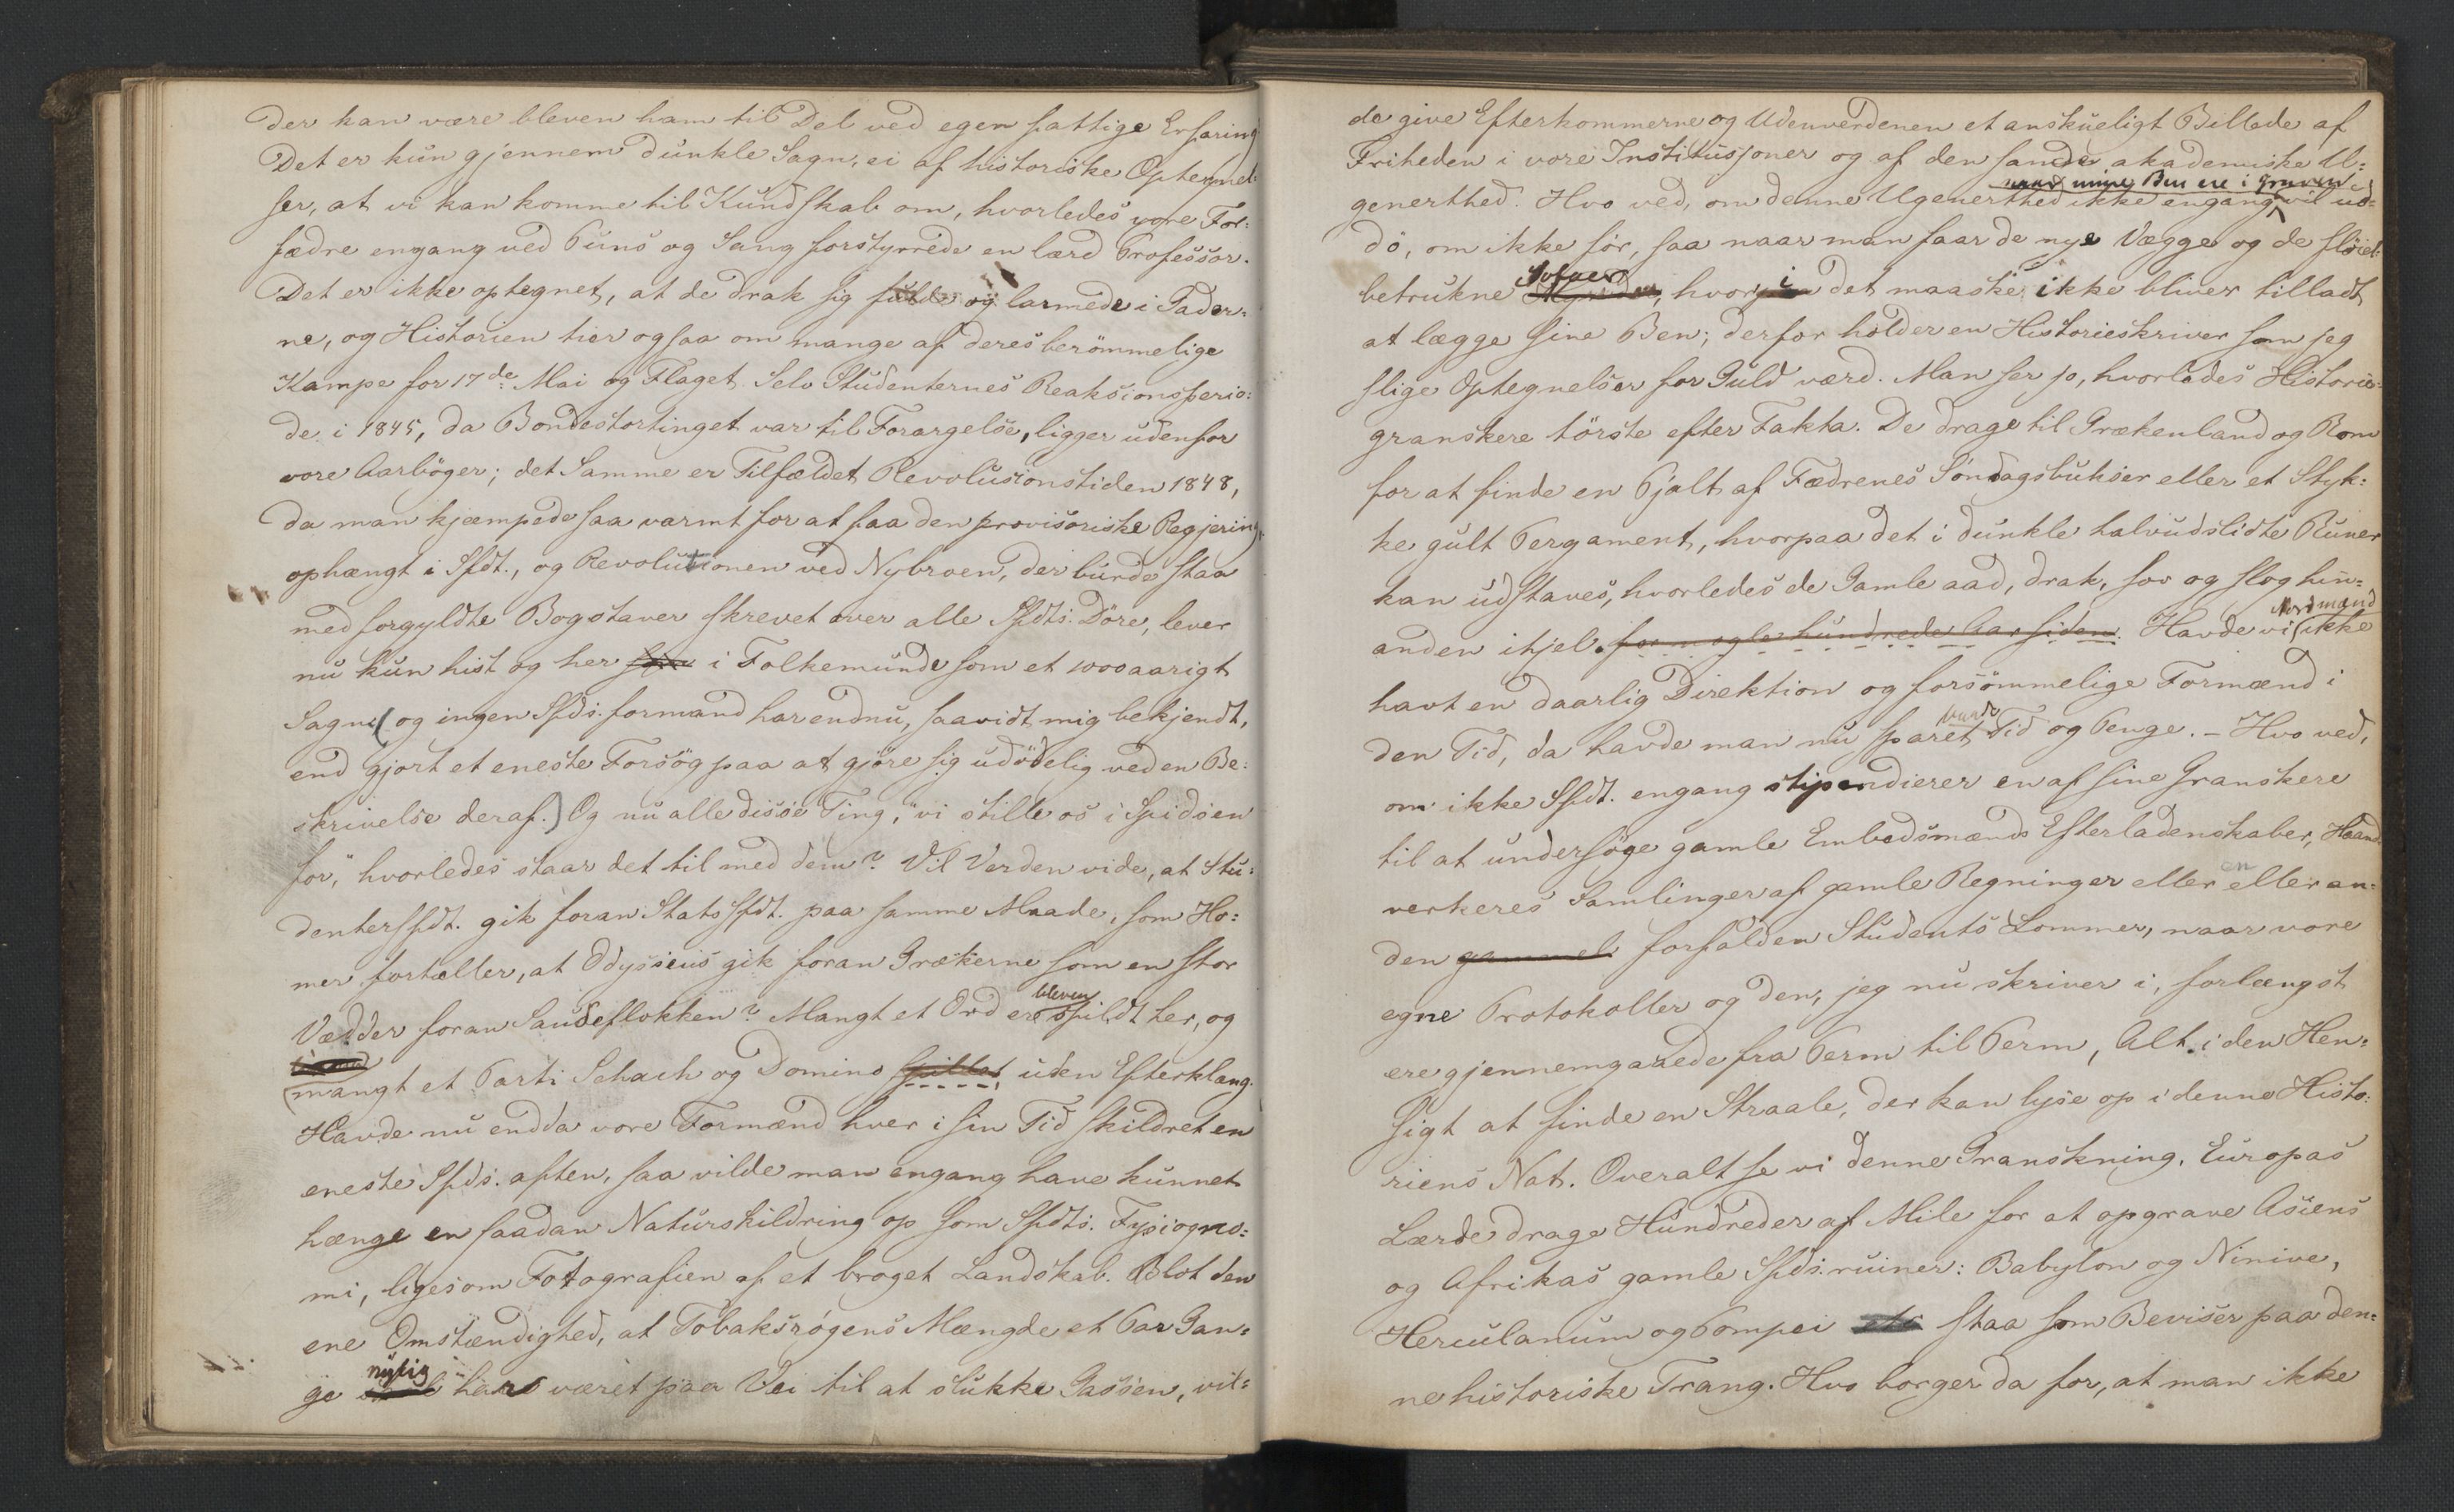 der kan være bleven ham til Del ved egen fattige Erfaring
Det er kun gjennem dunkle Sagn, ei af historiske Optegnel-
ser, at vi kan komme til Kundskab om, hvorledes vore For-
fædre engang ved Puns og Sang forstyrrede en lærd Professor.
Det er ikke optegnet, at de drak sig fulde og larmede i Gader-
ne, og Historien tier ogsaa om mange af deres berömmelige
Kampe for 17de Mai og Flaget. Selv Studenternes Reaksionsperio-
de i 1845, da Bondestortinget var til Forargelse, ligger udenfor
vore Aarböger; det Samme er Tilfældet Revolusionstiden 1848,
da man kjæmpede saa varmt for at faa den provisoriske Regjering
ophængt i Sfdt., og Revolutionen ved Nybroen, der burde staa
med forgyldte Bogstaver skrevet over alle Sfdts. Döre, lever
nu kun hist og her i Folkemunde som et 1000aarigt
Sagn (og ingen Sfds. formand har endnu, saavidt mig bekjendt,
end gjort et eneste Forsög paa at gjöre sig udödelig ved en Be-
skrivelse deraf.) Og nu alle disse Ting, "vi stille os i Spidsen
for", hvorledes staar det til med dem? Vil Verden vide, at Stu-
dentersfdt. gik foran Stats Sfdt. paa samme Maade, som Ho-
mer fortæller, at Odysseus gik foran Grækerne som en stor
Vædder foran Saudeflokken? Mangt et Ord er bleven spildt her, og
mangt et Parti Schach og Domino spillet uden Efterklang.
Havde nu endda vore Formænd hver i sin Tid skildret en
eneste Sfds. aften, saa vilde man engang have kunnet
hænge en saadan Naturskildring op som Sfdts. Fysiogno-
mi, ligesom Fotografien af et broget Landskab. Blot den
ene Omstændighed, at Tobaksrögens Mængde et Par Gan-
ge nylig har været paa Vei til at slukke Gassen, vil-
de give Efterkommerne og Udenverdenen et anskueligt Billede af
Friheden i vore Institusjoner og af den sande akademiske U-
naar mine Ben ere i Graven
generthed. Hvo ved, om denne Ugenerthed ikke engang vil ud-
dö, om ikke för, saa naar man faar de nye Vægge og de flöiel-
betrukne Sofaer, hvori det maaske ikke bliver tilladt
at lægge sine Ben; derfor holder en Historieskriver som jeg
slige Optegnelser for Guld værd. Man ser jo, hvorledes Historie-
granskere törste efter Fakta. De drage til Grækenland og Rom
for at finde en Pjalt af Fædrenes Söndagsbukser eller et Styk-
ke gult Pergament, hvorpaa det i dunkle halvudslidte Runer
kan udstaves, hvorledes de Gamle aad, drak, sov og slog hin-
anden ihjel for nogle hundrede Aar siden. Havde vi Nordmænd ikke
havt en daarlig Direktion og forsömmelige Formænd i
den Tid, da havde man nu sparet baade Tid og Penge. – Hvo ved,
om ikke Sfdt. engang stipendierer en af sine Granskere
til at undersöge gamle Embedsmænds Efterladenskaber, Haand-
verkeres Samlinger af gamle Regninger eller en eller an-
den gammel forfalden Students Lommer, naar vore
egne Protokoller og den, jeg nu skriver i, forlængst
ere gjennemgaaede fra Perm til Perm, Alt i den Hen-
sigt at finde en Straale, der kan lyse op i denne Histo-
riens Nat. Overalt se vi denne Granskning. Europas
Lærde drage Hundreder af Mile for at opgrave Asiens
og Afrikas gamle Sfds. ruiner: Babylon og Ninive,
Herculanum og Pompei staa som Beviser paa den-
ne historiske Trang. Hvo borger da for, at man ikke